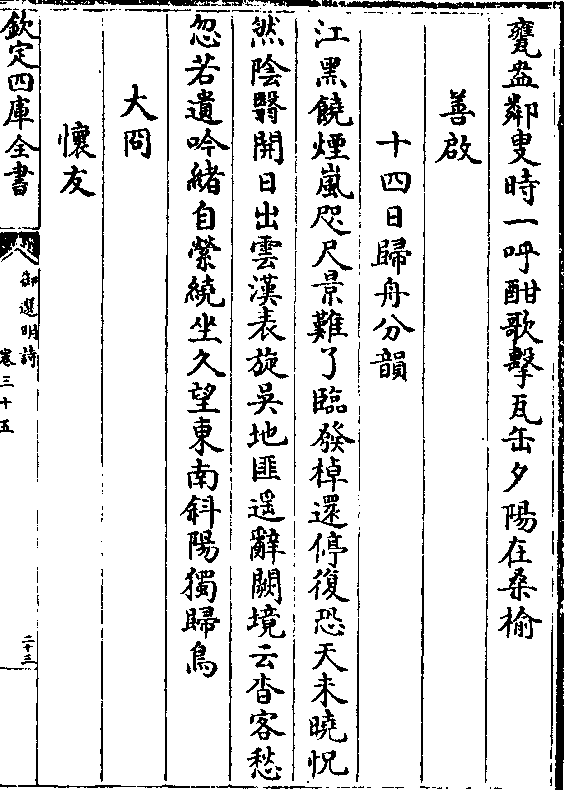 甕盎鄰叟時一呼酣歌擊瓦缶夕陽在桑榆
善啟
十四日歸舟分韻
江黑饒煙嵐咫尺景難了臨發棹還停復恐天未曉怳
然陰翳開日出雲漢表旋吳地匪遥辭闕境云杳客愁
忽若遺吟緒自縈繞坐久望東南斜陽獨歸鳥
大同
懷友
欽定四庫全書
御選明詩
卷三十五
二十三